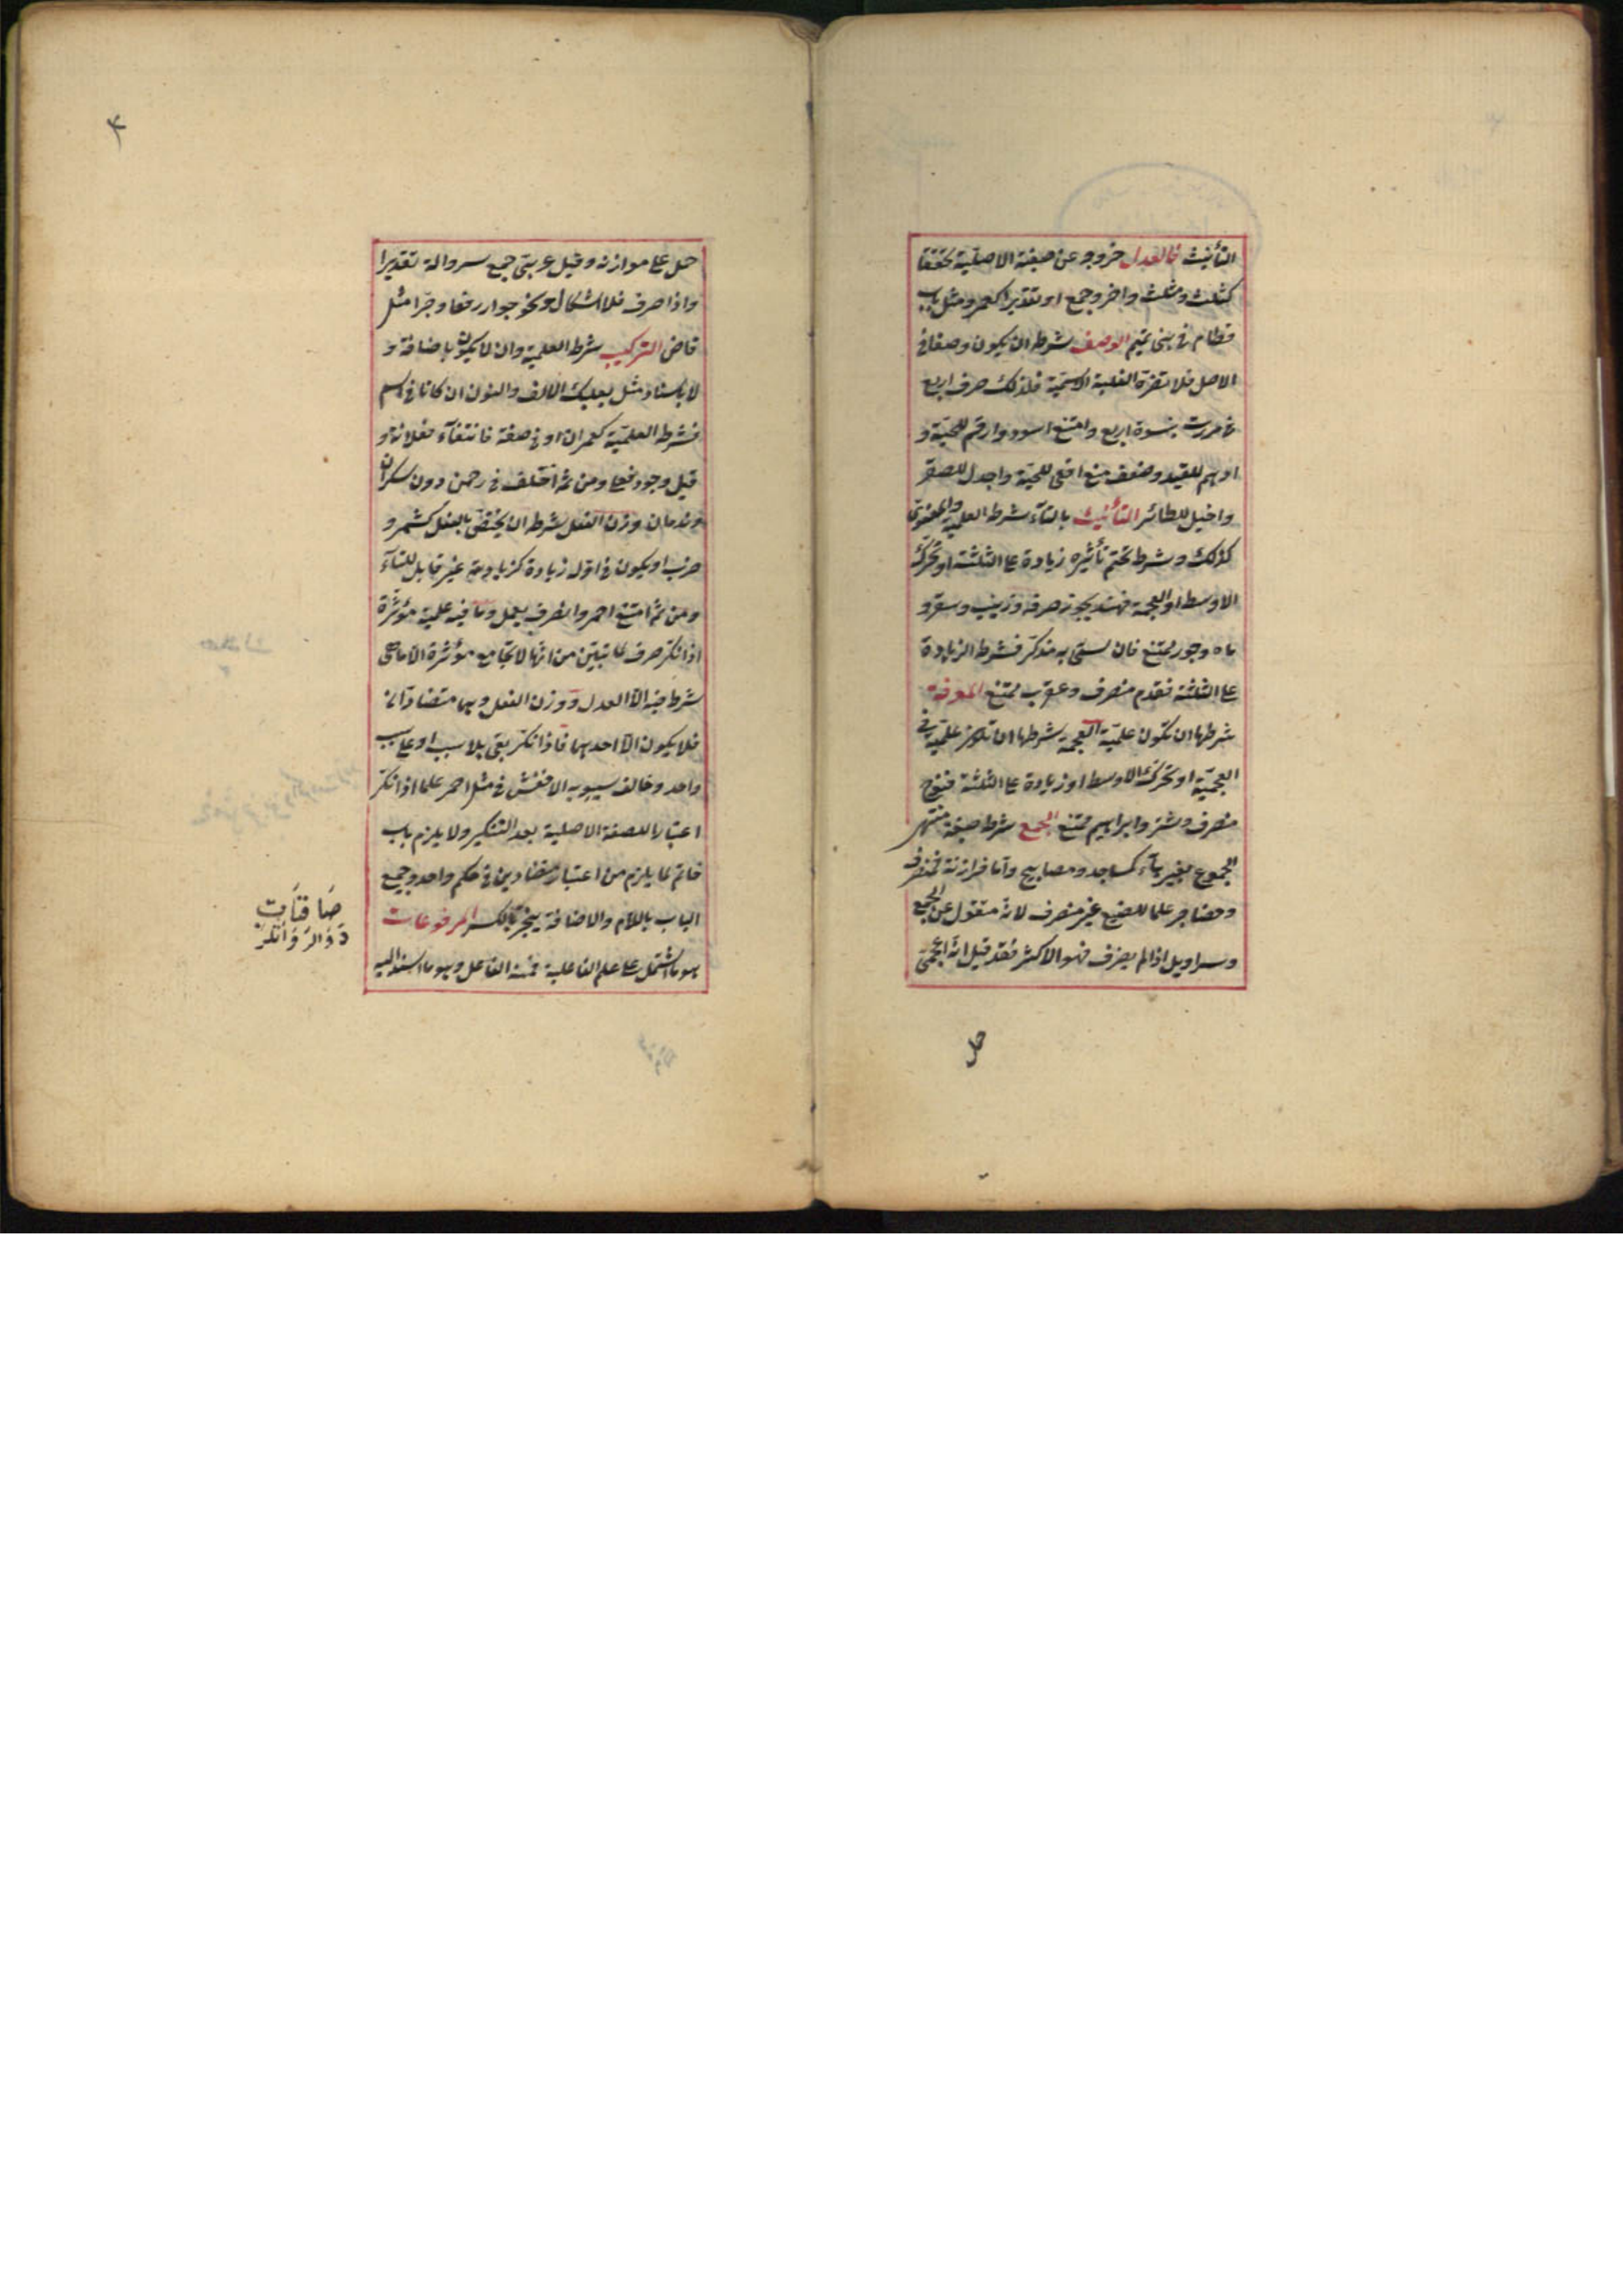 التأنيث فالعدل خروجه عن صيغته الاصلية تحقيقا
كثلث ومثلث واخر وجمع او تقديرا كعمر ومثل باب
قطام فى بنى تميم الوصف شرطه ان يكون وصفا فى
الاصل فلا تضره الغلبة الاسمية فلذلك صرف اربع
فى مررت بنسوة اربع وامتنع اسود وارقم للحية و
ادهم للقيد وضعف منع افعى للحية واجدل للصقر
واخيل للطائر التأنيث بالتاء شرطه العلمية والمعنوى
كذلك وشرط تحتم تأثيره زيادة على الثلثة او تحرك
الاوسط او العجمة فهند يجوز صرفه وزينب وسقر و
ماه وجور ممتنع فان سمى به مذكر فشرطه الزيادة
على الثلثة فقدم منصرف وعقرب ممتنع المعرفة
شرطها ان تكون علمية العجمة شرطها ان تكون علمية فى
العجمية او تحرك الاوسط او زيادة على الثلثة فنوح
منصرف وشتر وابراهيم ممتنع الجمع شرطه صيغة منتهى
الجموع بغير هاء كمساجد ومصابيح واما فرازنة فمنصرف
وحضاجر علما للضبع غير منصرف لانه منقول عن الجمع
وسراويل اذا لم يصرف فهو الاكثر فقد قيل انه اعجمى
حمل
حمل على موازنه وقيل عربى جمع سروالة تقديرا
واذا صرف فلا اشكال ونحو جوار رفعا وجرا مثل
قاض التركيب شرطه العلمية وان لا يكون باضافة و
لا باسناد مثل بعلبك الالف والنون ان كانا فى اسم
فشرطه العلمية كعمران او فى صفة فانتفاء فعلانة و
قيل وجود فعلى ومن ثم اختلف فى رحمن دون سكران
وندمان وزن الفعل شرطه ان يختص بالفعل كشمر و
ضرب او يكون فى اوله زيادة كزيادته غير قابل للتاء
ومن ثم امتنع احمر وانصرف يعمل وما فيه علمية مؤثرة
اذا نكر صرف لما تبين من انها لا تجامع مؤثرة الا ما هى
شرط فيه الا العدل ووزن الفعل وهما متضادان
فلا يكون الا احدهما فاذا نكر بقى بلا سبب او على سبب
واحد وخالف سيبويه الاخفش فى مثل احمر علما اذا نكر
اعتبارا للصفة الاصلية بعد التنكير ولا يلزم باب
خاتم لما يلزم من اعتبار متضادين فى حكم واحد وجميع
الباب باللام والاضافة ينجر بالكسر المرفوعات
هو ما اشتمل على علم الفاعلية فمنه الفاعل وهو ما اسند اليه